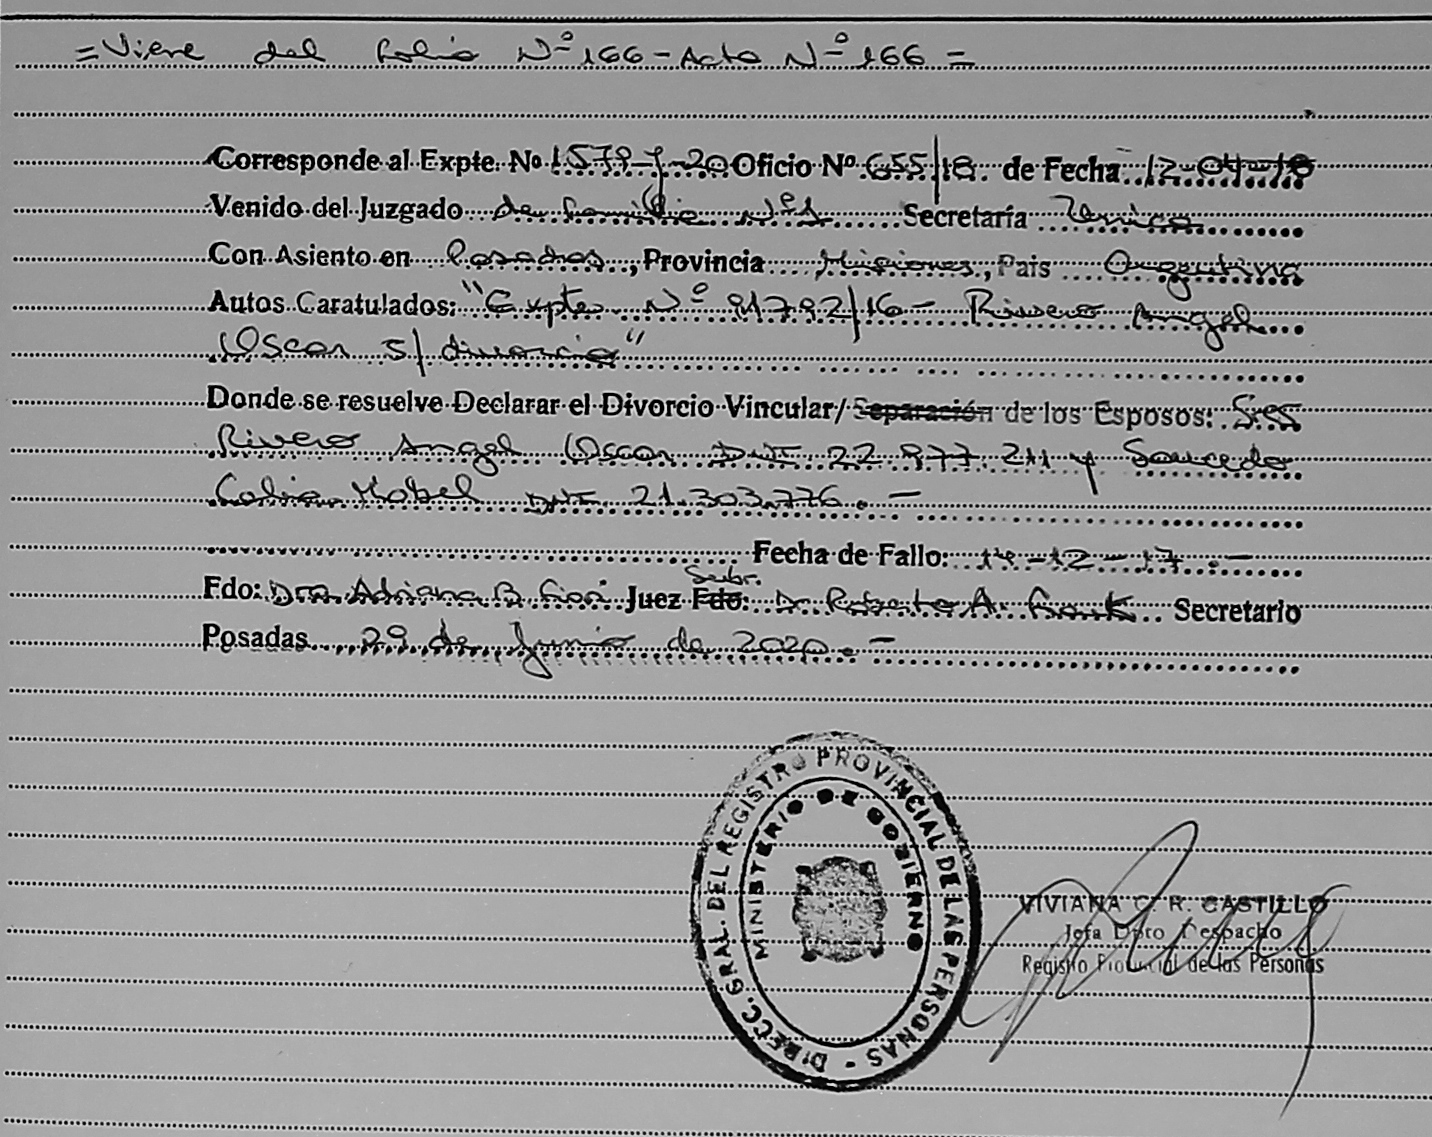 =Viene del folio Nº 166-Acta Nº 166=
Corresponde al Expte. Nº 1579-Y-20 Oficio Nº 655/18. de Fecha 12-04-18
Venido del Juzgado de Familia Nº1 Secretaría Única
Con Asiento en Posadas, Provincia Misiones, Pais Argentina
Autos Caratulados: "Expte Nº 91792/16- Rivero Angel
Oscar s/ divorcio"
Donde se resuelve Declarar el Divorcio Vincular/ Separación de los Esposos: Sres
Rivero Angel Oscar DNI 22.977.211 y Saucedo
Celia Mabel DNI 21.303.776.-
Fecha de Fallo: 14-12-17.-
Subr.
Fdo: Dra. Adriana B. Juez Fdo: Dr. Roberto A. Secretario
Posadas 29 de Junio de 2020.-
DIRECC. GRAL. DEL REGISTRO PROVINCIAL DE LAS PERSONAS -
MINISTERIO DE GOBIERNO
VIVIANA C. R. CASTILLO
Jefa Dpto Despacho
Registro Provincial de las Personas